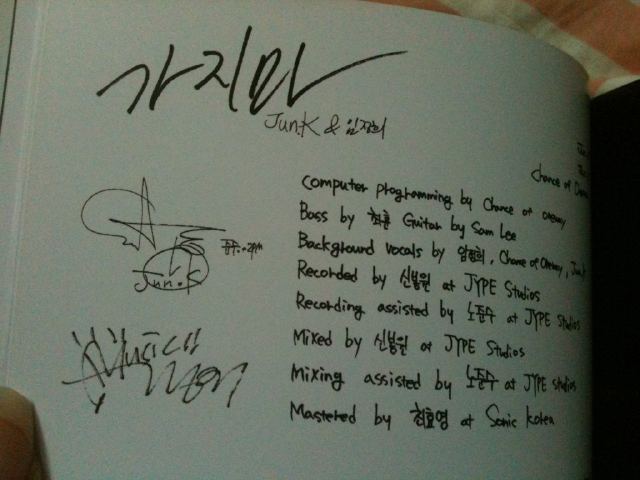 가지마
Jun.K & 임정희
Jun
Chance of
Computer programming by Chance of
Bass by 최훈 Guitar by Sam Lee
Background vocals by 임정희, Chance of Omeny,
Recorded by 신봉원 at JYPE Studios
Recording assisted by 노준수 at JYPE Studios
Mixed by 신봉원 at JYPE Studios
Mixing assisted by 노준수 at JYPE Studios
Mastered by 최효영 at Sonic Korea
Jun.K